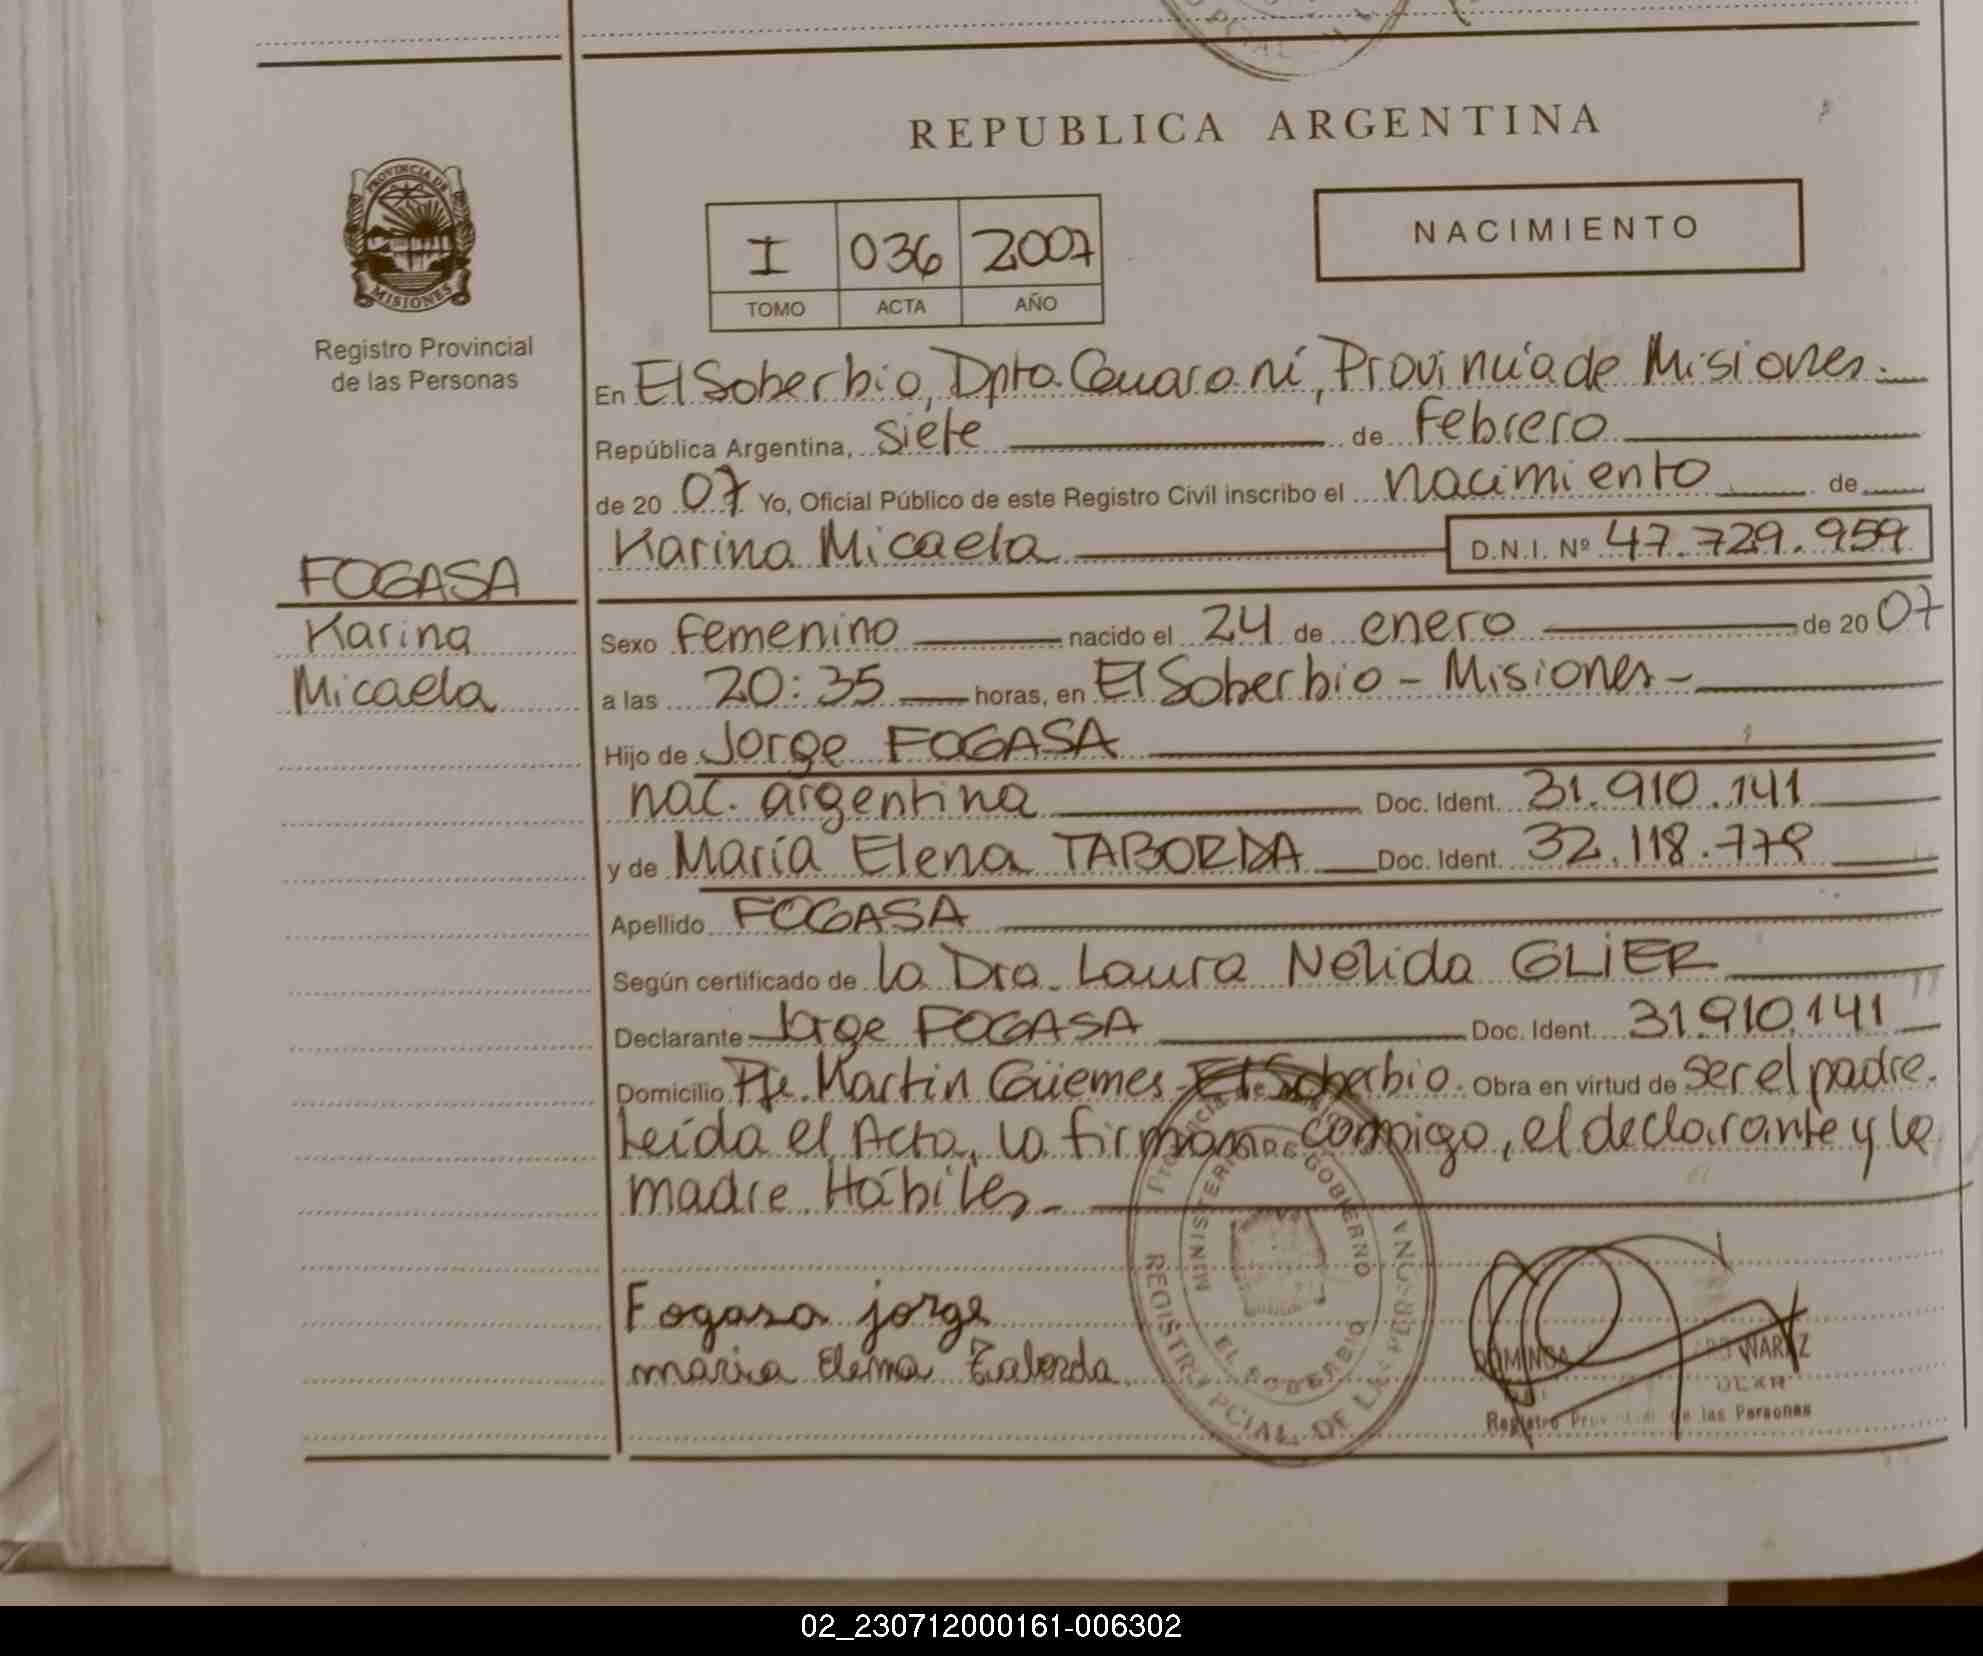 REPUBLICA ARGENTINA
PROVINCIA DE
MISIONES
Registro Provincial
de las Personas
I 036 2007
TOMO ACTA AÑO
NACIMIENTO
En El Soberbio, Dpto. Guaraní, Provincia de Misiones.
República Argentina, siete de Febrero
de 20 07 Yo, Oficial Público de este Registro Civil inscribo el nacimiento de
Karina Micaela D.N.I. Nº 47.729.959
FOGASA
Karina
Micaela
Sexo femenino nacido el 24 de enero de 20 07
a las 20:35 horas, en El Soberbio - Misiones -
Hijo de Jorge FOGASA
nac. argentina Doc. Ident. 31.910.141
y de María Elena TABORDA Doc. Ident. 32.118.779
Apellido FOGASA
Según certificado de la Dra. Laura Nélida GLIER
Declarante Jorge FOGASA Doc. Ident. 31.910.141
Domicilio Pje. Martin Güemes - El Soberbio. Obra en virtud de ser el padre.
Leída el Acta, la firman conmigo, el declarante y la
madre Hábiles -
Fogasa jorge
maria Elena Taborda
MINISTERIO DE GOBIERNO
EL SOBERBIO
REGISTRO PCIAL. DE LAS PERSONAS
Registro Provincial de las Personas
02_230712000161-006302